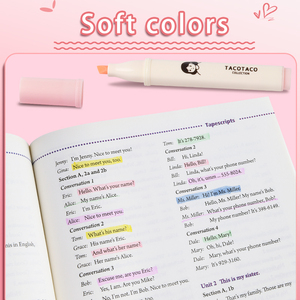 Soft colors
TACOTACO
COLLECTION
Tapescripts
Jenny: I'm Jenny. Nice to meet you!
Gina: Nice to meet you, too.
Section A, 2a and 2b
Conversation 1
Eric: Hello. What's your name?
Alice: My name's Alice.
Eric: I'm Eric.
Alice: Nice to meet you.
Conversation 2
Tom: What's his name?
Grace: His name's Eric.
Tom: And what's her name?
Grace: Her name's Alice.
Conversation 3
Bob: Excuse me, are you Eric?
Eric: Yes, I am. Are you Mike?
Bob: No, I'm not. I'm Bob. Nice to meet you.
Tom: It's 278-7928.
Conversation 2
Bill: Hi, Linda!
Linda: Hello, Bill!
Bill: Linda, what's your phone number?
Linda: Oh, it's, umm ... 555-8024.
Conversation 3
Ms. Miller: Hi! I'm Ms. Miller.
Bob: Hello, Ms. Miller! My name's Bob.
Ms. Miller: What's your phone number, Bob?
Bob: My phone number? It's
Conversation 4
Dale: Hello, Mary!
Mary: Oh, hi, Dale!
Dale: Mary, what's your phone number?
Mary: It's 929-3160.
Unit 2 This is my sister.
Section A, 1b
That's my family. Those are my
in English,